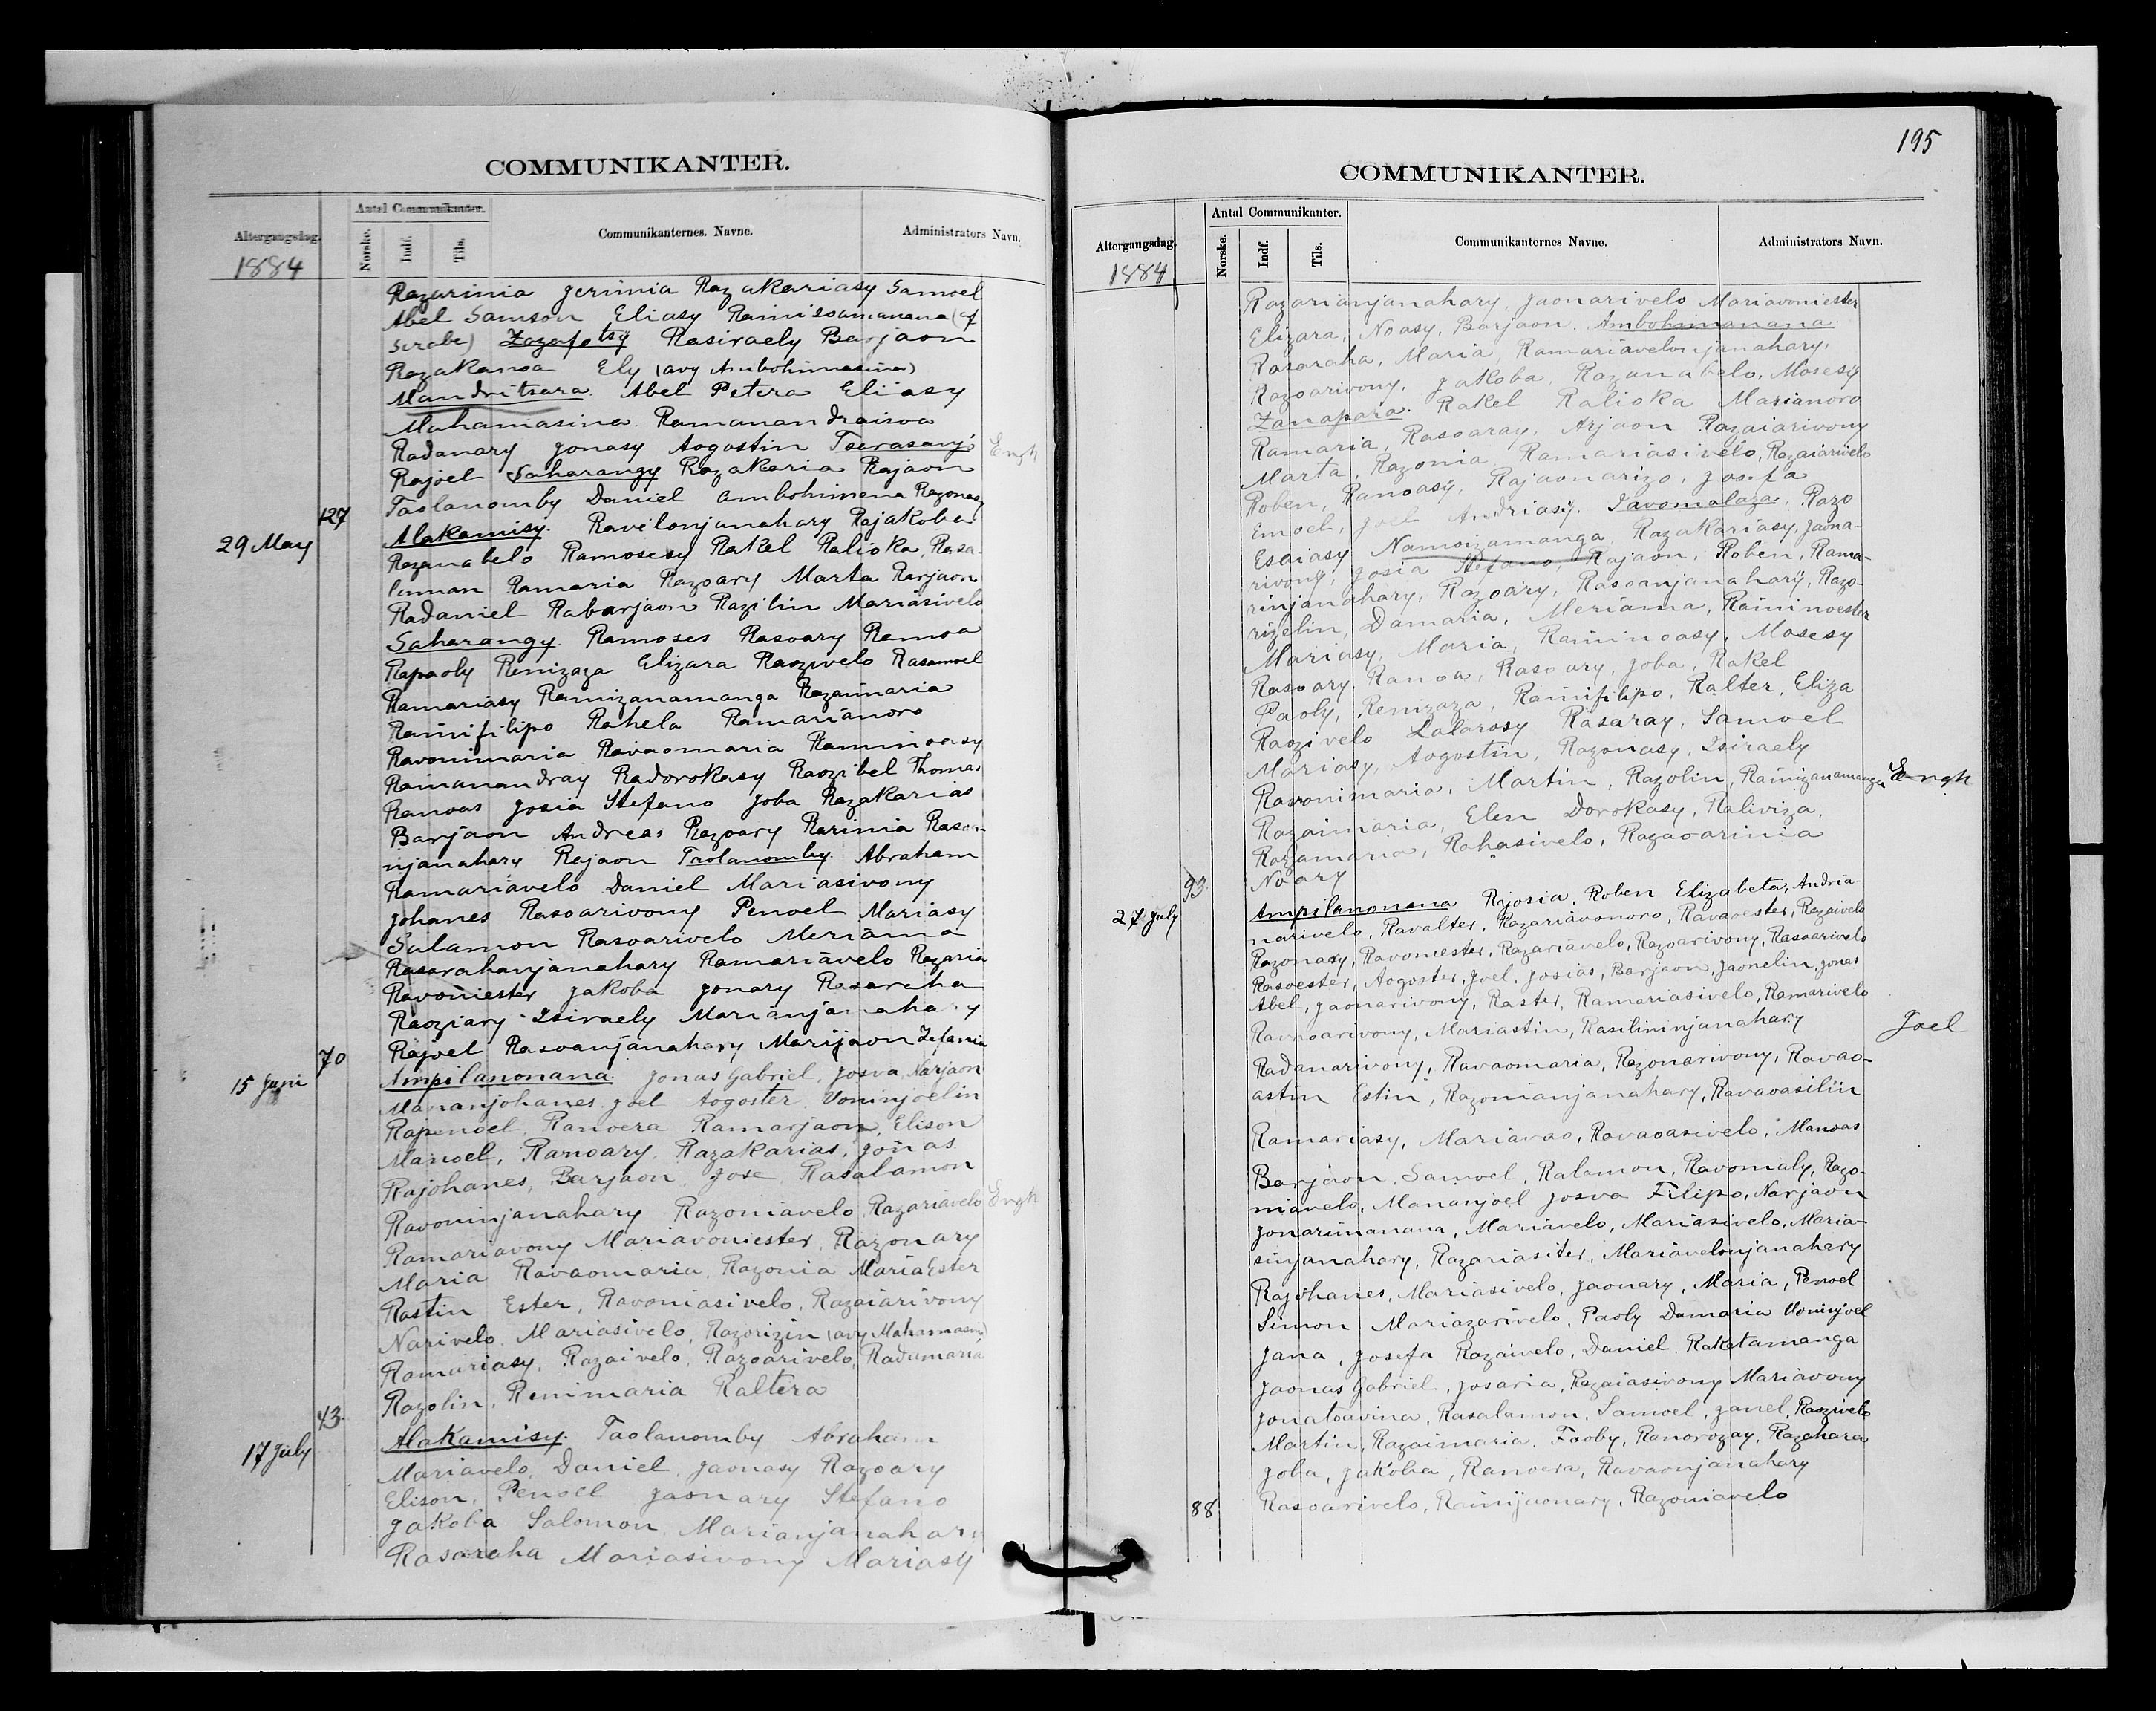 COMMUNIKANTER.
Altergangsdag.
Antal Communikanter.
Norske.
Indf.
Tils.
Communikanternes. Navne.
Administrators Navn.
1884
Razarinia Jerimia Razakariasy Samoel
Abel Samson Eliasy Rainisoamanana (af
Sirabe) Zazafotsy Rasiraely Barjaon
Razakanoa Ely (avy Ambohimasina)
Mandritsara. Abel Petera Eliasy
Mahamasina. Ramanandraisoa
Radanary Jonasy Aogostin Tsarasanjo Engh
Rajoel Saharangy Razakaria Rajaon
127 Taolanomby Daniel Ambohimena Razonasy
29 May Alakamisy. Ravelonjanahary Rajakoba
Razanabelo Ramosesy Rakel Ralioka, Rasa-
laman Ramaria Razoary Marta Rarjaon
Radaniel Rabarjaon Razilin Mariasivelo
Saharangy. Ramoses Rasoary Remoa
Rapaoly Renizaza Elizara Raozivelo Rasamoel
Ramariasy Ramizanamanga Razaimaria
Rainifilipo Rahela Ramarianoro
Ravonimaria Ravaomaria Raminoasy
Ramanandray Radorokasy Raozibel Thomas
Ranoas Josia Stefano Joba Razakarias
Barjaon Andreas Razoary Rarinia Rasoa-
njanahary Rajaon Taolanomby. Abraham
Ramariavelo Daniel Mariasivony
Johanes Rasoarivony Penoel Mariasy
Salamon Rasoarivelo Meriama
Rasarahanjanahary Ramariavelo Razaria
Ravoniester Jakoba Jonary Rasaraha
Raoziary Isiraely Marianjanahary
70 Rajoel Rasoanjanahary Marijaon Zefania
15 Juni Ampilanonana. Jonas Gabriel, Josva, Narjaon
Mananjohanes. Joel Aogoster. Voninjoelin
Rapenoel, Ranoera Ramarjaon, Elison
Manoel, Ranoary, Razakarias, Jonas
Rajohanes, Barjaon, Jose, Rasalamon
Ravoninjanahary Razoniavelo Razariavelo Engh
Ramariavony Mariavoniester, Razonary
Maria Ravaomaria, Razonia Maria Ester
Rastin Ester, Ravoniasivelo, Razaiarivony
Narivelo, Mariasivelo, Razorizin (avy Mahamasin)
Ramariasy, Razaivelo, Razoarivelo, Radamaria
43. Razolin, Renimaria Raltera
17 July Alakamisy. Taolanomby Abraham
Mariavelo, Daniel, Jaonasy Razoary
Elison, Penoel Jaonary Stefano
Jakoba Salomon, Marianjanahary
Rasaraha Mariasivony Mariasy
195
COMMUNIKANTER.
Altergangsdag.
Antal Communikanter.
Norske.
Indf.
Tils.
Communikanternes Navne.
Administrators Navn.
1884
Razarianjanahary, Jaonarivelo Mariavoniester
Elizara, Noasy, Barjaon. Ambohimanana.
Rasaraha, Maria, Ramariavelonjanahary,
Razoarivony, Jakoba, Razanabelo, Mosesy
Zanapara. Rakel Ralioka Marianoro
Ramaria, Rasoaray, Arjaon Razaiarivony
Marta, Razonia Ramariasivelo, Razaiarivelo
Roben, Ranoasy, Rajaonarizo, Josefa
Emoel, Joel Andriasy. Tavomalaza, Razo
Esaiasy Namoizamanga, Razakariasy, Jaona-
rivony, Josia Stefano, Rajaon, Roben, Rama-
rinjanahary, Razoary, Rasoanjanahary, Razo-
rizelin, Damaria, Meriama, Raininoester
Mariasy, Maria, Raininoasy, Mosesy
Rasoary Ranoa, Rasoary, Joba, Rakel
Paoly, Renizaza, Rainifilipo, Ralter, Eliza
Raozivelo Lalarosy Rasaray, Samoel
Mariasy, Aogostin, Razonasy, Isiraely
Ravonimaria, Martin, Razolin, Rainizanamanga Engh
Razaimaria, Elen Dorokasy, Raliviza,
Razamaria, Rahasivelo, Razaoarinia
93. Noary
27 July Ampilanonana Rajosia, Roben Elizabeta, Andria-
narivelo, Ravalter, Razariavonoro, Ravaoester, Razaivelo
Razonasy, Ravoniester, Razariavelo, Razoarivony, Rasoarivelo
Rasoester, Aogoster, Joel, Josias, Barjaon, Jaonelin, Jonas
Abel, Jaonarivony, Raster, Ramariasivelo, Ramarivelo
Ravaoarivony, Mariastin, Rasilininjanahary Joel
Radanarivony, Ravaomaria, Razonarivony, Ravao-
astin Estin, Razonianjanahary, Ravaoasilin
Ramariasy, Mariavao, Ravaoasivelo, Manoas
Barjaon, Samoel, Ralamon, Ravonialy, Razo-
niavelo, Mananjoel Josva Filipo, Narjaon
Jonarimanana, Mariavelo, Mariasivelo, Maria-
sinjanahary, Razariasiter, Mariavelonjanahary
Rajohanes, Mariasivelo, Jaonary, Maria, Penoel
Simon Mariazarivelo, Paoly Damaria Voninjoel
Jana, Josefa Razaivelo, Daniel. Raketamanga
Jaonas Gabriel, Josaria, Razaiasivony Mariavony
Jonatoavina, Rasalamon, Samoel, Janel, Raozivelo
Martin, Razaimaria. Faoby, Ranorozay, Razahara
Joba, Jakoba, Ranoera, Ravaonjanahary
88 Rasoarivelo, Rainijaonary, Razoniavelo